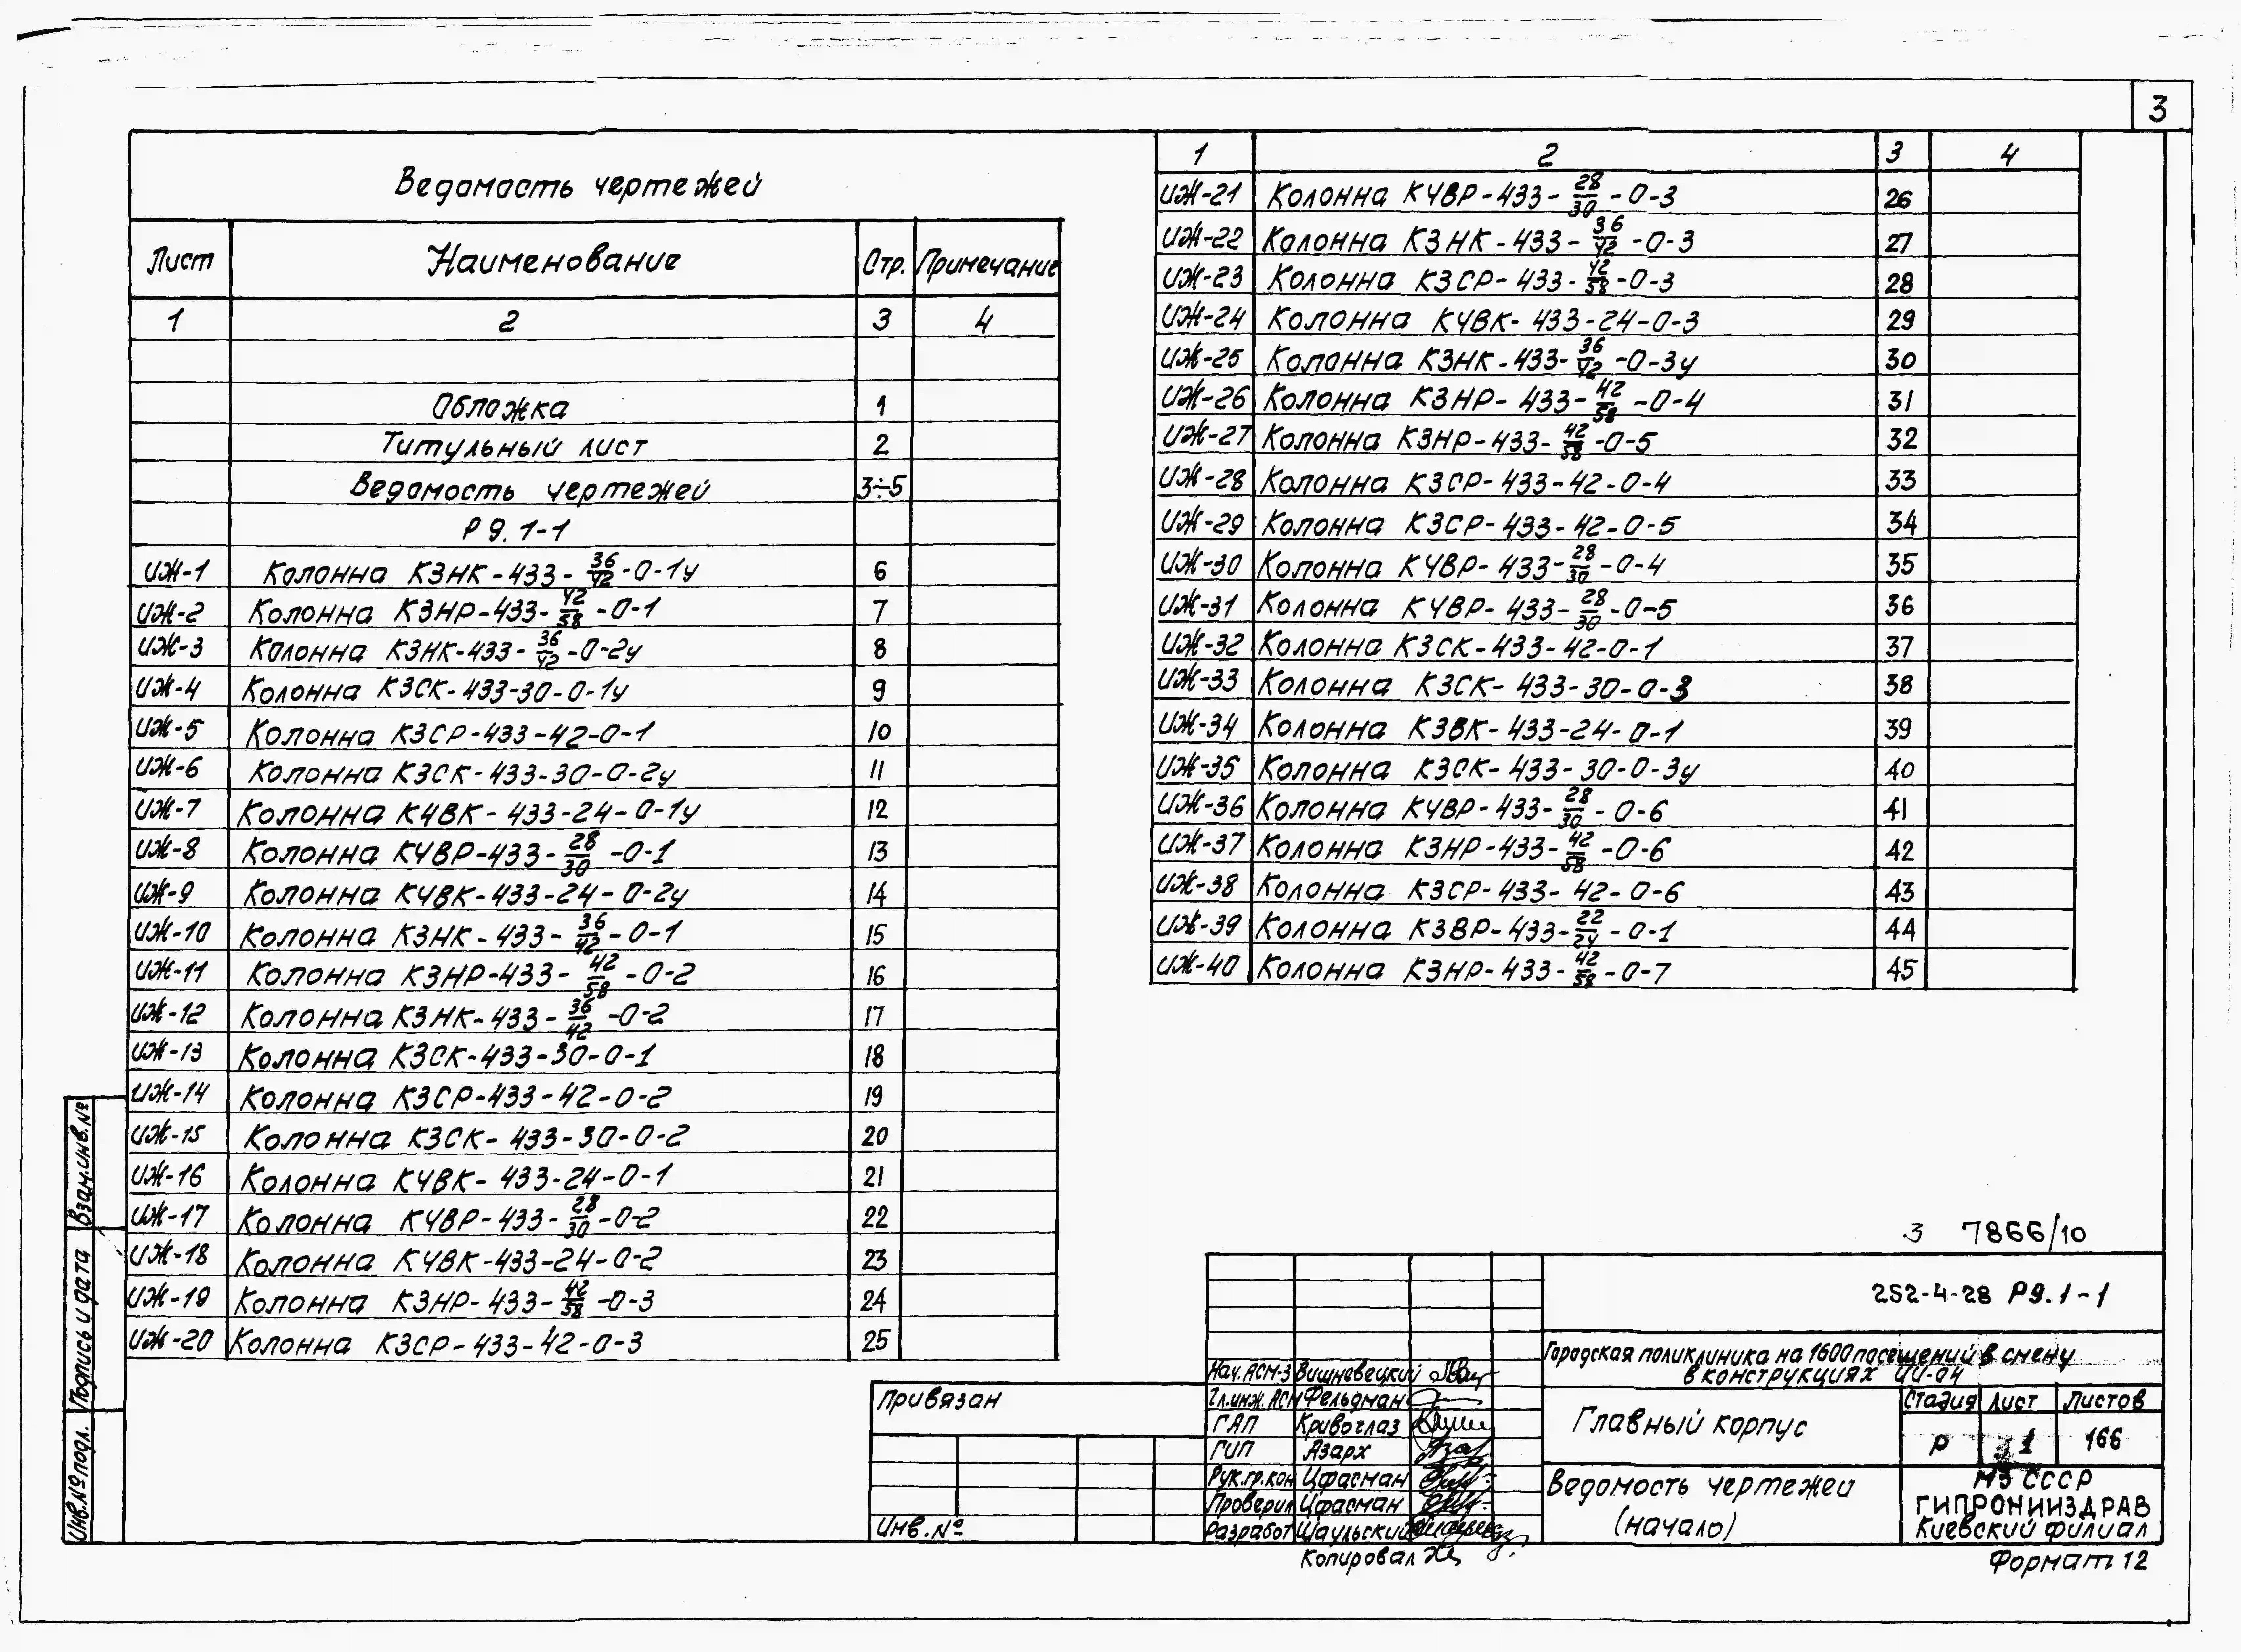 3
Ведомость чертежей
Лист Наименование Стр. Примечание
1 2 3 4
Обложка 1
Титульный лист 2
Ведомость чертежей 3÷5
Р 9.1-1
ИЖ-1 Колонна К3НК-433-36/42-0-1у 6
ИЖ-2 Колонна К3НР-433-42/58-0-1 7
ИЖ-3 Колонна К3НК-433-36/42-0-2у 8
ИЖ-4 Колонна К3СК-433-30-0-1у 9
ИЖ-5 Колонна К3СР-433-42-0-1 10
ИЖ-6 Колонна К3СК-433-30-0-2у 11
ИЖ-7 Колонна К4ВК-433-24-0-1у 12
ИЖ-8 Колонна К4ВР-433-28/30-0-1 13
ИЖ-9 Колонна К4ВК-433-24-0-2у 14
ИЖ-10 Колонна К3НК-433-36/42-0-1 15
ИЖ-11 Колонна К3НР-433-42/58-0-2 16
ИЖ-12 Колонна К3НК-433-36/42-0-2 17
ИЖ-13 Колонна К3СК-433-30-0-1 18
ИЖ-14 Колонна К3СР-433-42-0-2 19
ИЖ-15 Колонна К3СК-433-30-0-2 20
ИЖ-16 Колонна К4ВК-433-24-0-1 21
ИЖ-17 Колонна К4ВР-433-28/30-0-2 22
ИЖ-18 Колонна К4ВК-433-24-0-2 23
ИЖ-19 Колонна К3НР-433-42/58-0-3 24
ИЖ-20 Колонна К3СР-433-42-0-3 25
1 2 3 4
ИЖ-21 Колонна К4ВР-433-28/30-0-3 26
ИЖ-22 Колонна К3НК-433-36/42-0-3 27
ИЖ-23 Колонна К3СР-433-42/58-0-3 28
ИЖ-24 Колонна К4ВК-433-24-0-3 29
ИЖ-25 Колонна К3НК-433-36/42-0-3у 30
ИЖ-26 Колонна К3НР-433-42/58-0-4 31
ИЖ-27 Колонна К3НР-433-42/58-0-5 32
ИЖ-28 Колонна К3СР-433-42-0-4 33
ИЖ-29 Колонна К3СР-433-42-0-5 34
ИЖ-30 Колонна К4ВР-433-28/30-0-4 35
ИЖ-31 Колонна К4ВР-433-28/30-0-5 36
ИЖ-32 Колонна К3СК-433-42-0-1 37
ИЖ-33 Колонна К3СК-433-30-0-3 38
ИЖ-34 Колонна К3ВК-433-24-0-1 39
ИЖ-35 Колонна К3СК-433-30-0-3у 40
ИЖ-36 Колонна К4ВР-433-28/30-0-6 41
ИЖ-37 Колонна К3НР-433-42/58-0-6 42
ИЖ-38 Колонна К3СР-433-42-0-6 43
ИЖ-39 Колонна К3ВР-433-22/24-0-1 44
ИЖ-40 Колонна К3НР-433-42/58-0-7 45
Взам.инв.№
Подпись и дата
Инв.№ подл.
3 7866/10
252-4-28 Р9.1-1
Городская поликлиника на 1600 посещений в смену
в конструкциях ИИ-04
Нач.АСМ-3 Вишневецкий
Гл.инж.АСМ Фельдман
ГАП Кривоглаз
ГИП Азарх
Рук.гр.кон Цфасман
Проверил Цфасман
Разработ Шаульский
Главный корпус
Стадия Лист Листов
Р 1 166
Ведомость чертежей
(начало)
МЗ СССР
ГИПРОНИИЗДРАВ
Киевский филиал
Привязан
Инв.№
Копировал
Формат 12